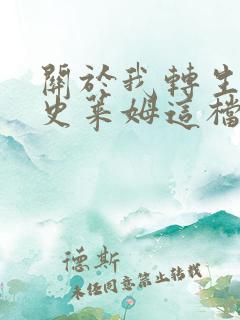 關於我轉生
史萊姆這檔
德斯
未经同意禁止转载